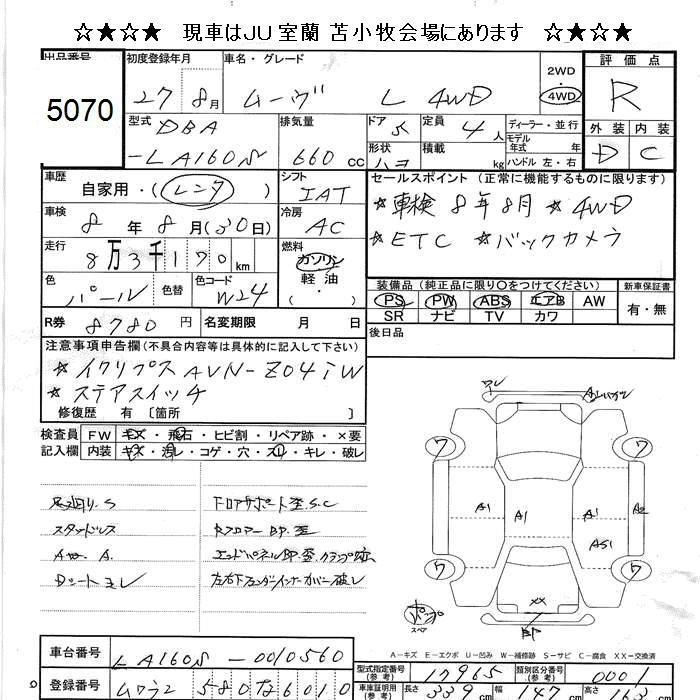 ☆★☆★ 現車はJU室蘭 苫小牧会場にあります ☆★☆★
出品番号 初度登録年月 車名・グレード 2WD 4WD 評価点
5070 27年 8月 ムーヴ L 4WD R
型式 排気量 ドア 定員 ディーラー・並行 外装 内装
DBA
-LA160S 660 cc 5 4人 モデル年式 年式 D C
形状 積載 kg ハンドル 左・右
車歴 自家用・(レンタ) シフト IAT セールスポイント (正常に機能するものに限ります)
車検 8年 8月 (30日) 冷房 AC ★車検 8年8月 ★4WD
走行 8万3千170km 燃料 ガソリン 軽油 ★ETC ★バックカメラ
色 パール 色替 色コード W24 装備品 (純正品に限り○をつけてください) 新車保証書
PS PW ABS エアB AW 有・無
SR ナビ TV カワ
R券 8780円 名変期限 月 日 後日品
注意事項申告欄(不具合内容等は具体的に記入して下さい)
★イクリプスAVN-Z04iW
★ステアスイッチ
修復歴 有 〔箇所 〕
検査員 FW キズ・飛石・ヒビ割・リペア跡・×要
記入欄 内装 キズ・汚レ・コゲ・穴・スレ・キレ・破レ
足廻り.S フロアサポート歪.S.C
スタッドレス Rフロアー BP.歪
A A. エンドパネルBP.歪.クランプ跡
左右下フェンダーインナーカバー破レ
ワ ワ
A1 A1 A1 A2
A51
ワ ワ
××
スペア
BP
A-キズ E-エクボ U-凹み W-補修跡 S-サビ C-腐食 XX-交換済
車台番号 LA160S-0010560 型式指定番号(参考) 17965 類別区分番号(参考) 0001
登録番号 580 な 6010 車体証明用(参考) 長さ 339 cm 幅 147 cm 高さ 163